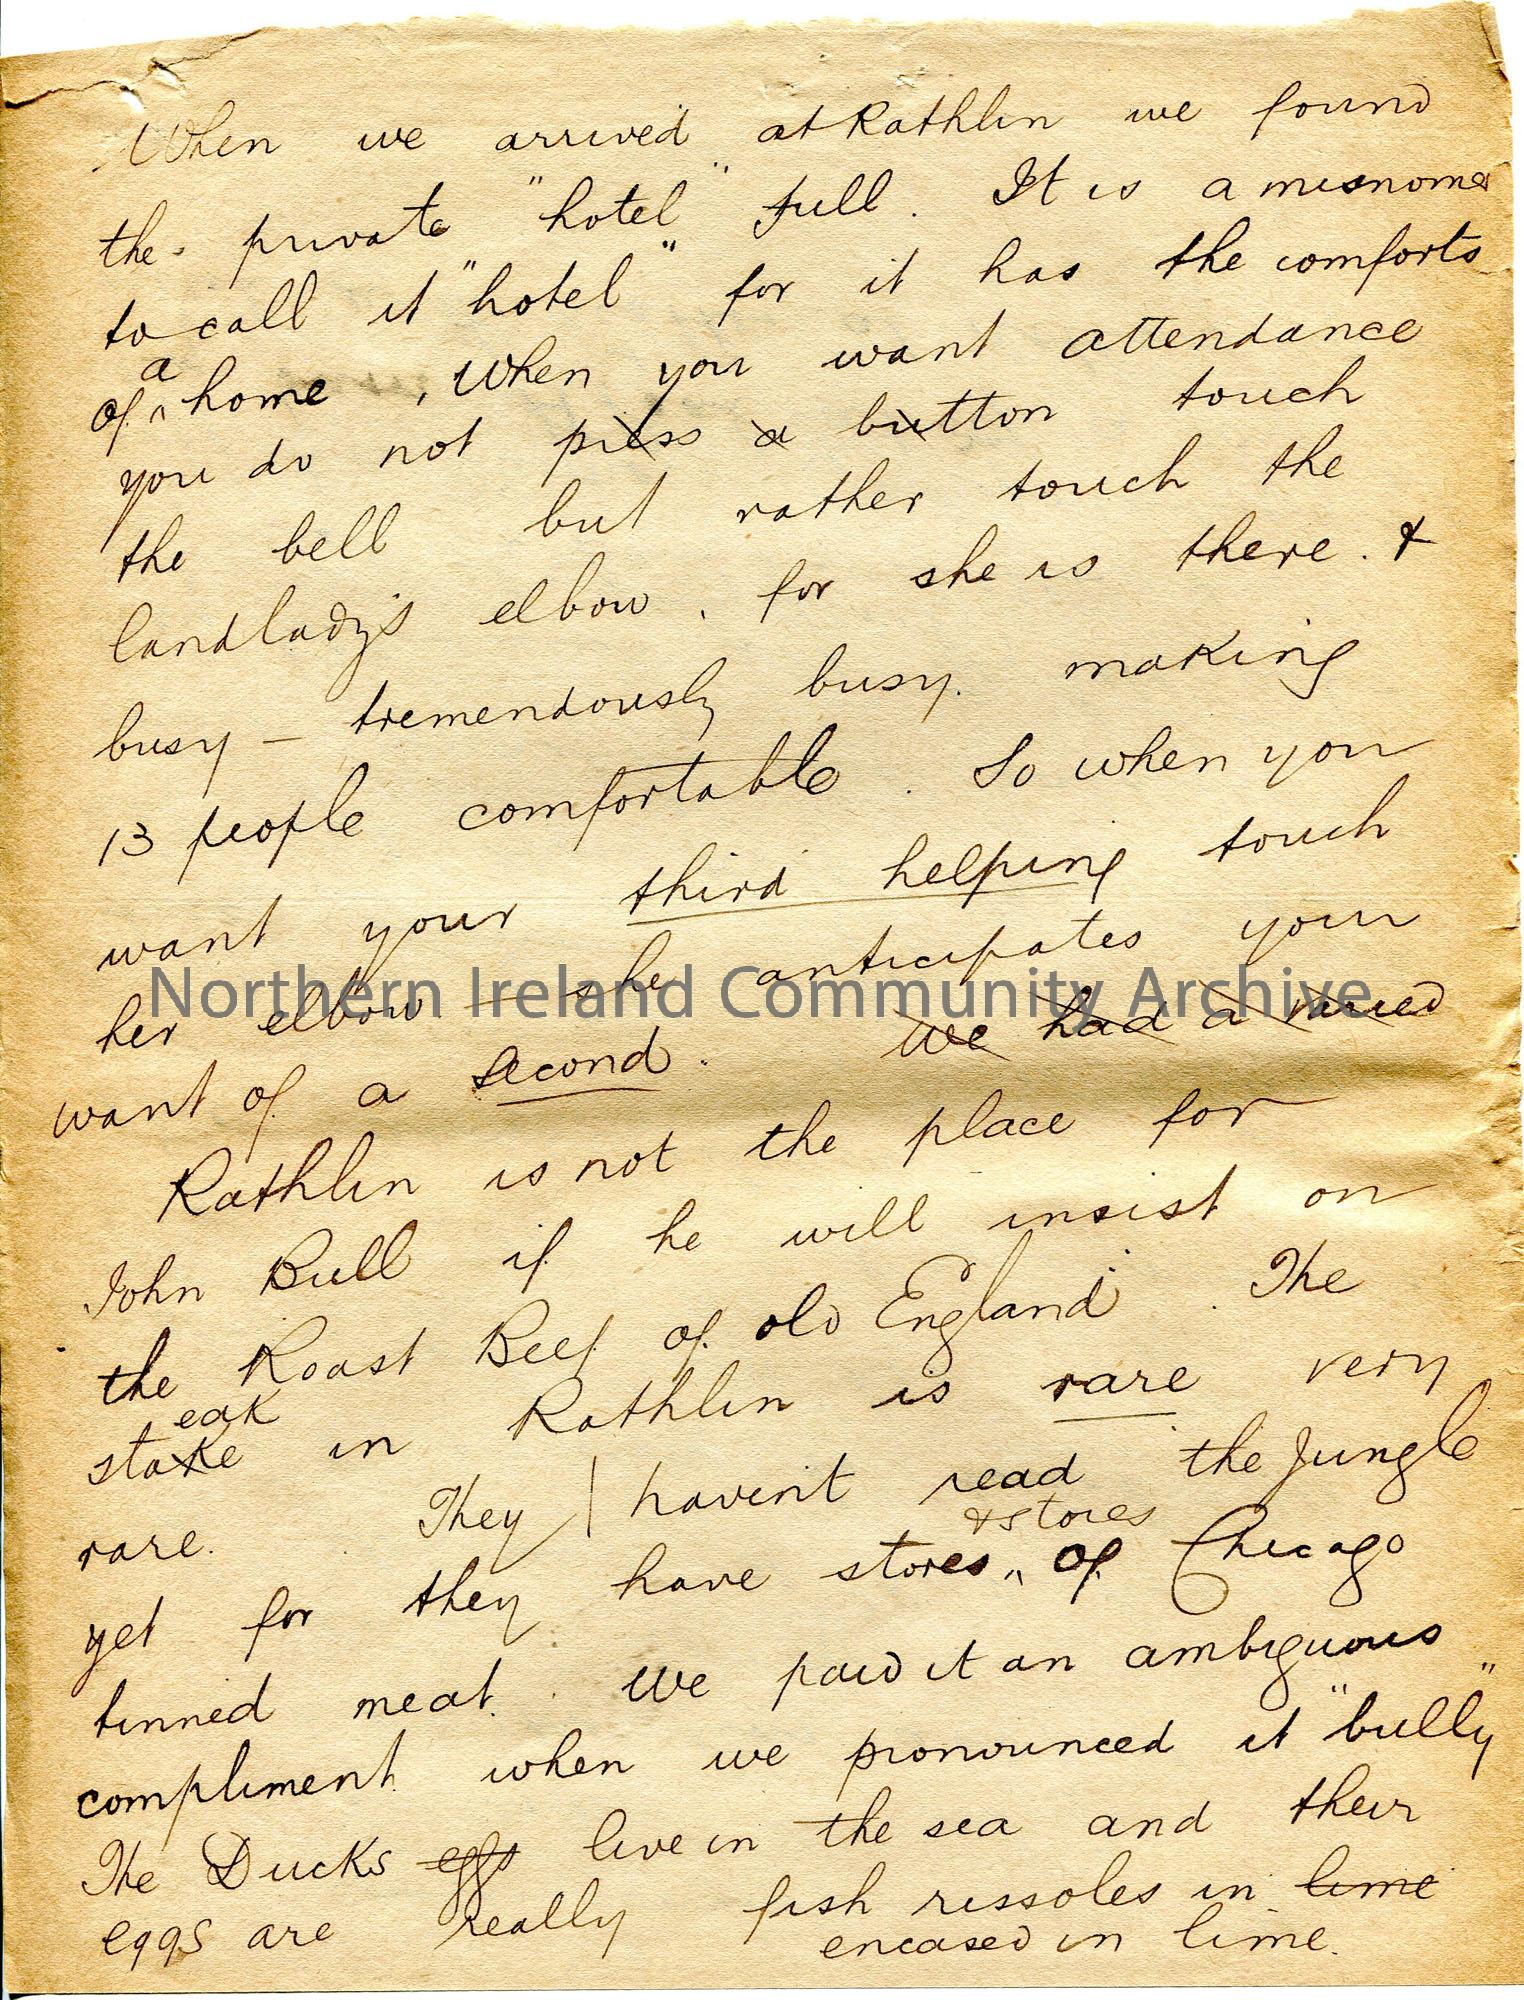 When we arrived at Rathlin we found
the private "hotel" full. It is a misnomer
to call it "hotel" for it has the comforts
of a home. When you want attendance
you do not press a button touch
the bell but rather touch the
landlady's elbow, for she is there. &
busy – tremendously busy. making
13 people comfortable. So when you
want your third helping touch
her elbow – she anticipates your
want of a second. We had a varied
Rathlin is not the place for
John Bull if he will insist on
the Roast Beef of old England. The
eak
stake in Rathlin is rare very
rare. They haven't read the Jungle
& stores
yet for they have stores of Chicago
tinned meat. We paid it an ambiguous
compliment when we pronounced it "bully"
The Ducks eggs live in the sea and their
eggs are really fish rissoles in lime
encased in lime.
Northern Ireland Community Archive